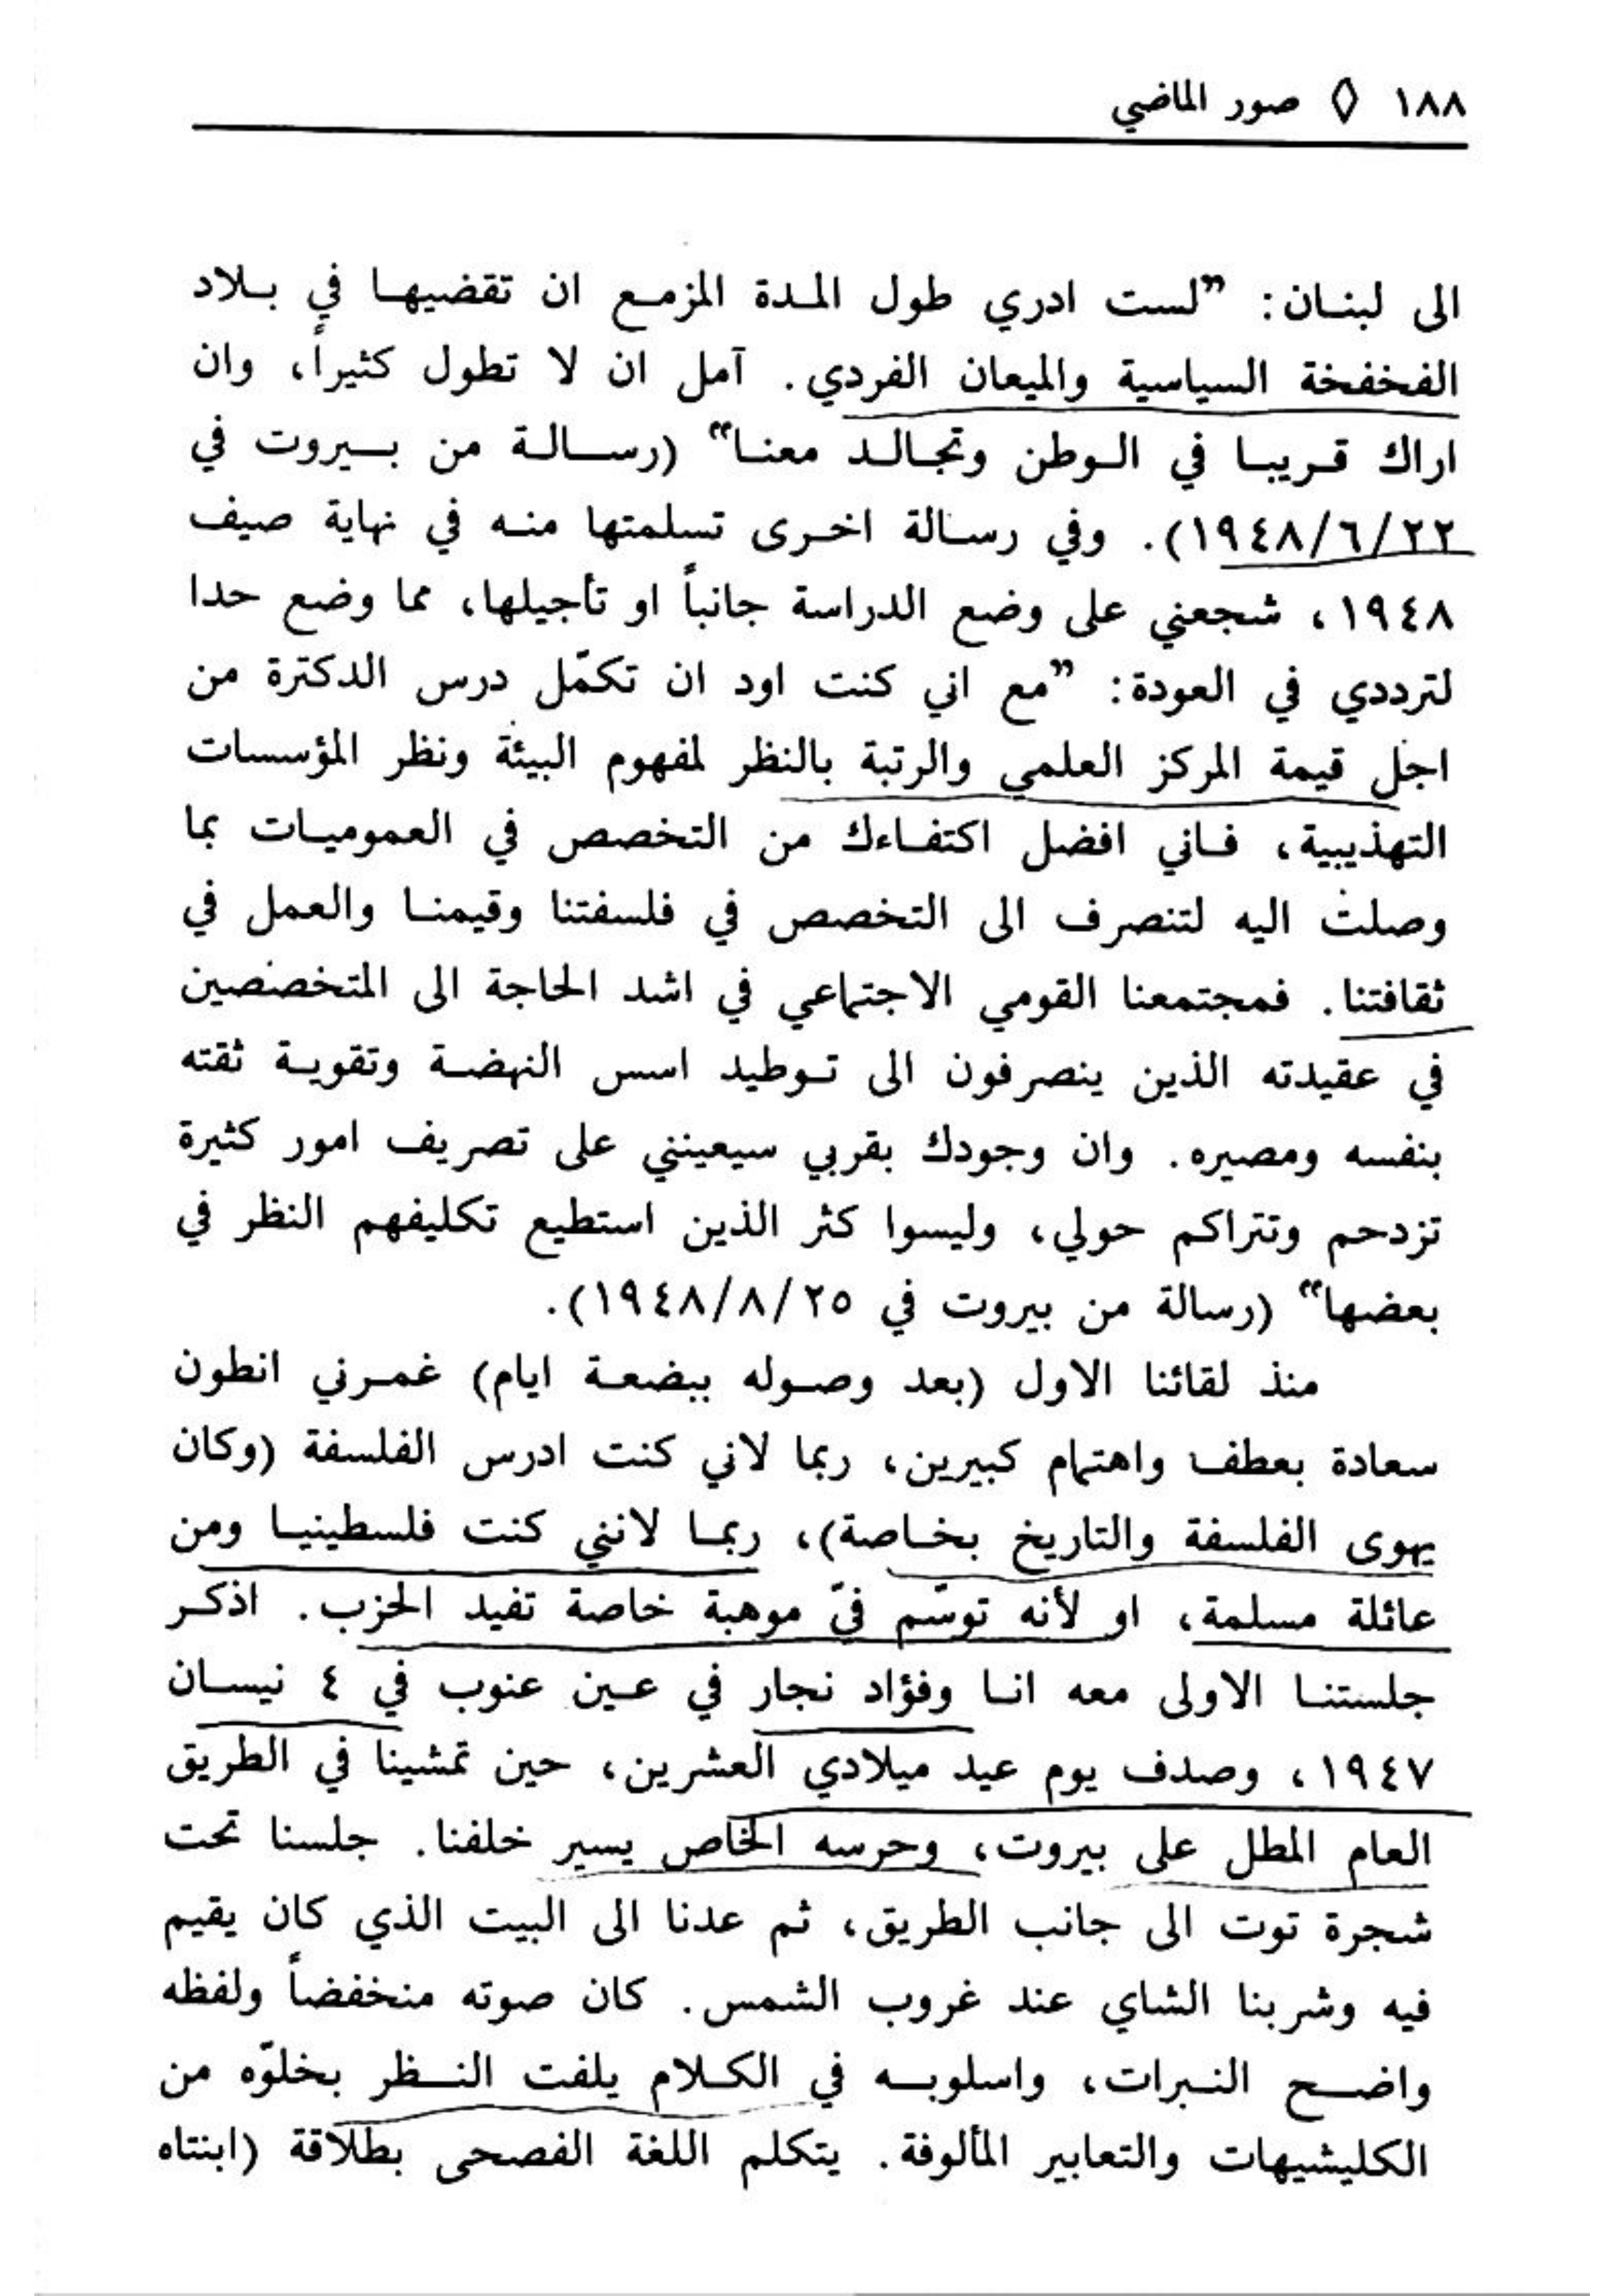 ١٨٨ ◊ صور الماضي
الى لبنـان: ”لست ادري طول المـدة المزمـع ان تقضيهـا في بـلاد
الفخفخة السياسية والميعان الفردي. آمل ان لا تطول كثيراً، وان
اراك قـريبـا في الـوطن وتجـالـد معنـا“ (رسـالـة من بـيروت في
٢٢/٦/١٩٤٨). وفي رسـالة اخـرى تسلمتها منـه في نهاية صيف
١٩٤٨، شجعني على وضع الدراسة جانباً او تأجيلها، مما وضع حدا
لترددي في العودة: ”مع اني كنت اود ان تكمّل درس الدكترة من
اجل قيمة المركز العلمي والرتبة بالنظر لمفهوم البيئة ونظر المؤسسات
التهذيبية، فـاني افضل اكتفـاءك من التخصص في العموميـات بما
وصلت اليه لتنصرف الى التخصص في فلسفتنا وقيمنـا والعمل في
ثقافتنا. فمجتمعنا القومي الاجتماعي في اشد الحاجة الى المتخصصين
في عقيدته الذين ينصرفون الى تـوطيد اسس النهضـة وتقويـة ثقته
بنفسه ومصيره. وان وجودك بقربي سيعينني على تصريف امور كثيرة
تزدحم وتتراكم حولي، وليسوا كثر الذين استطيع تكليفهم النظر في
بعضها“ (رسالة من بيروت في ٢٥/٨/١٩٤٨).
منذ لقائنا الاول (بعد وصـوله ببضعـة ايام) غمـرني انطون
سعادة بعطف واهتمام كبيرين، ربما لاني كنت ادرس الفلسفة (وكان
يهوى الفلسفة والتاريخ بخـاصة)، ربمـا لانني كنت فلسطينيـا ومن
عائلة مسلمة، او لأنه توسّم فيّ موهبة خاصة تفيد الحزب. اذكـر
جلستنـا الاولى معه انـا وفؤاد نجار في عـين عنوب في ٤ نيسـان
١٩٤٧، وصدف يوم عيد ميلادي العشرين، حين تمشينا في الطريق
العام المطل على بيروت، وحرسه الخاص يسير خلفنا. جلسنا تحت
شجرة توت الى جانب الطريق، ثم عدنا الى البيت الذي كان يقيم
فيه وشربنا الشاي عند غروب الشمس. كان صوته منخفضاً ولفظه
واضـح النـبرات، واسلوبـه في الكـلام يلفت النـظر بخلوّه من
الكليشيهات والتعابير المألوفة. يتكلم اللغة الفصحى بطلاقة (ابنتاه